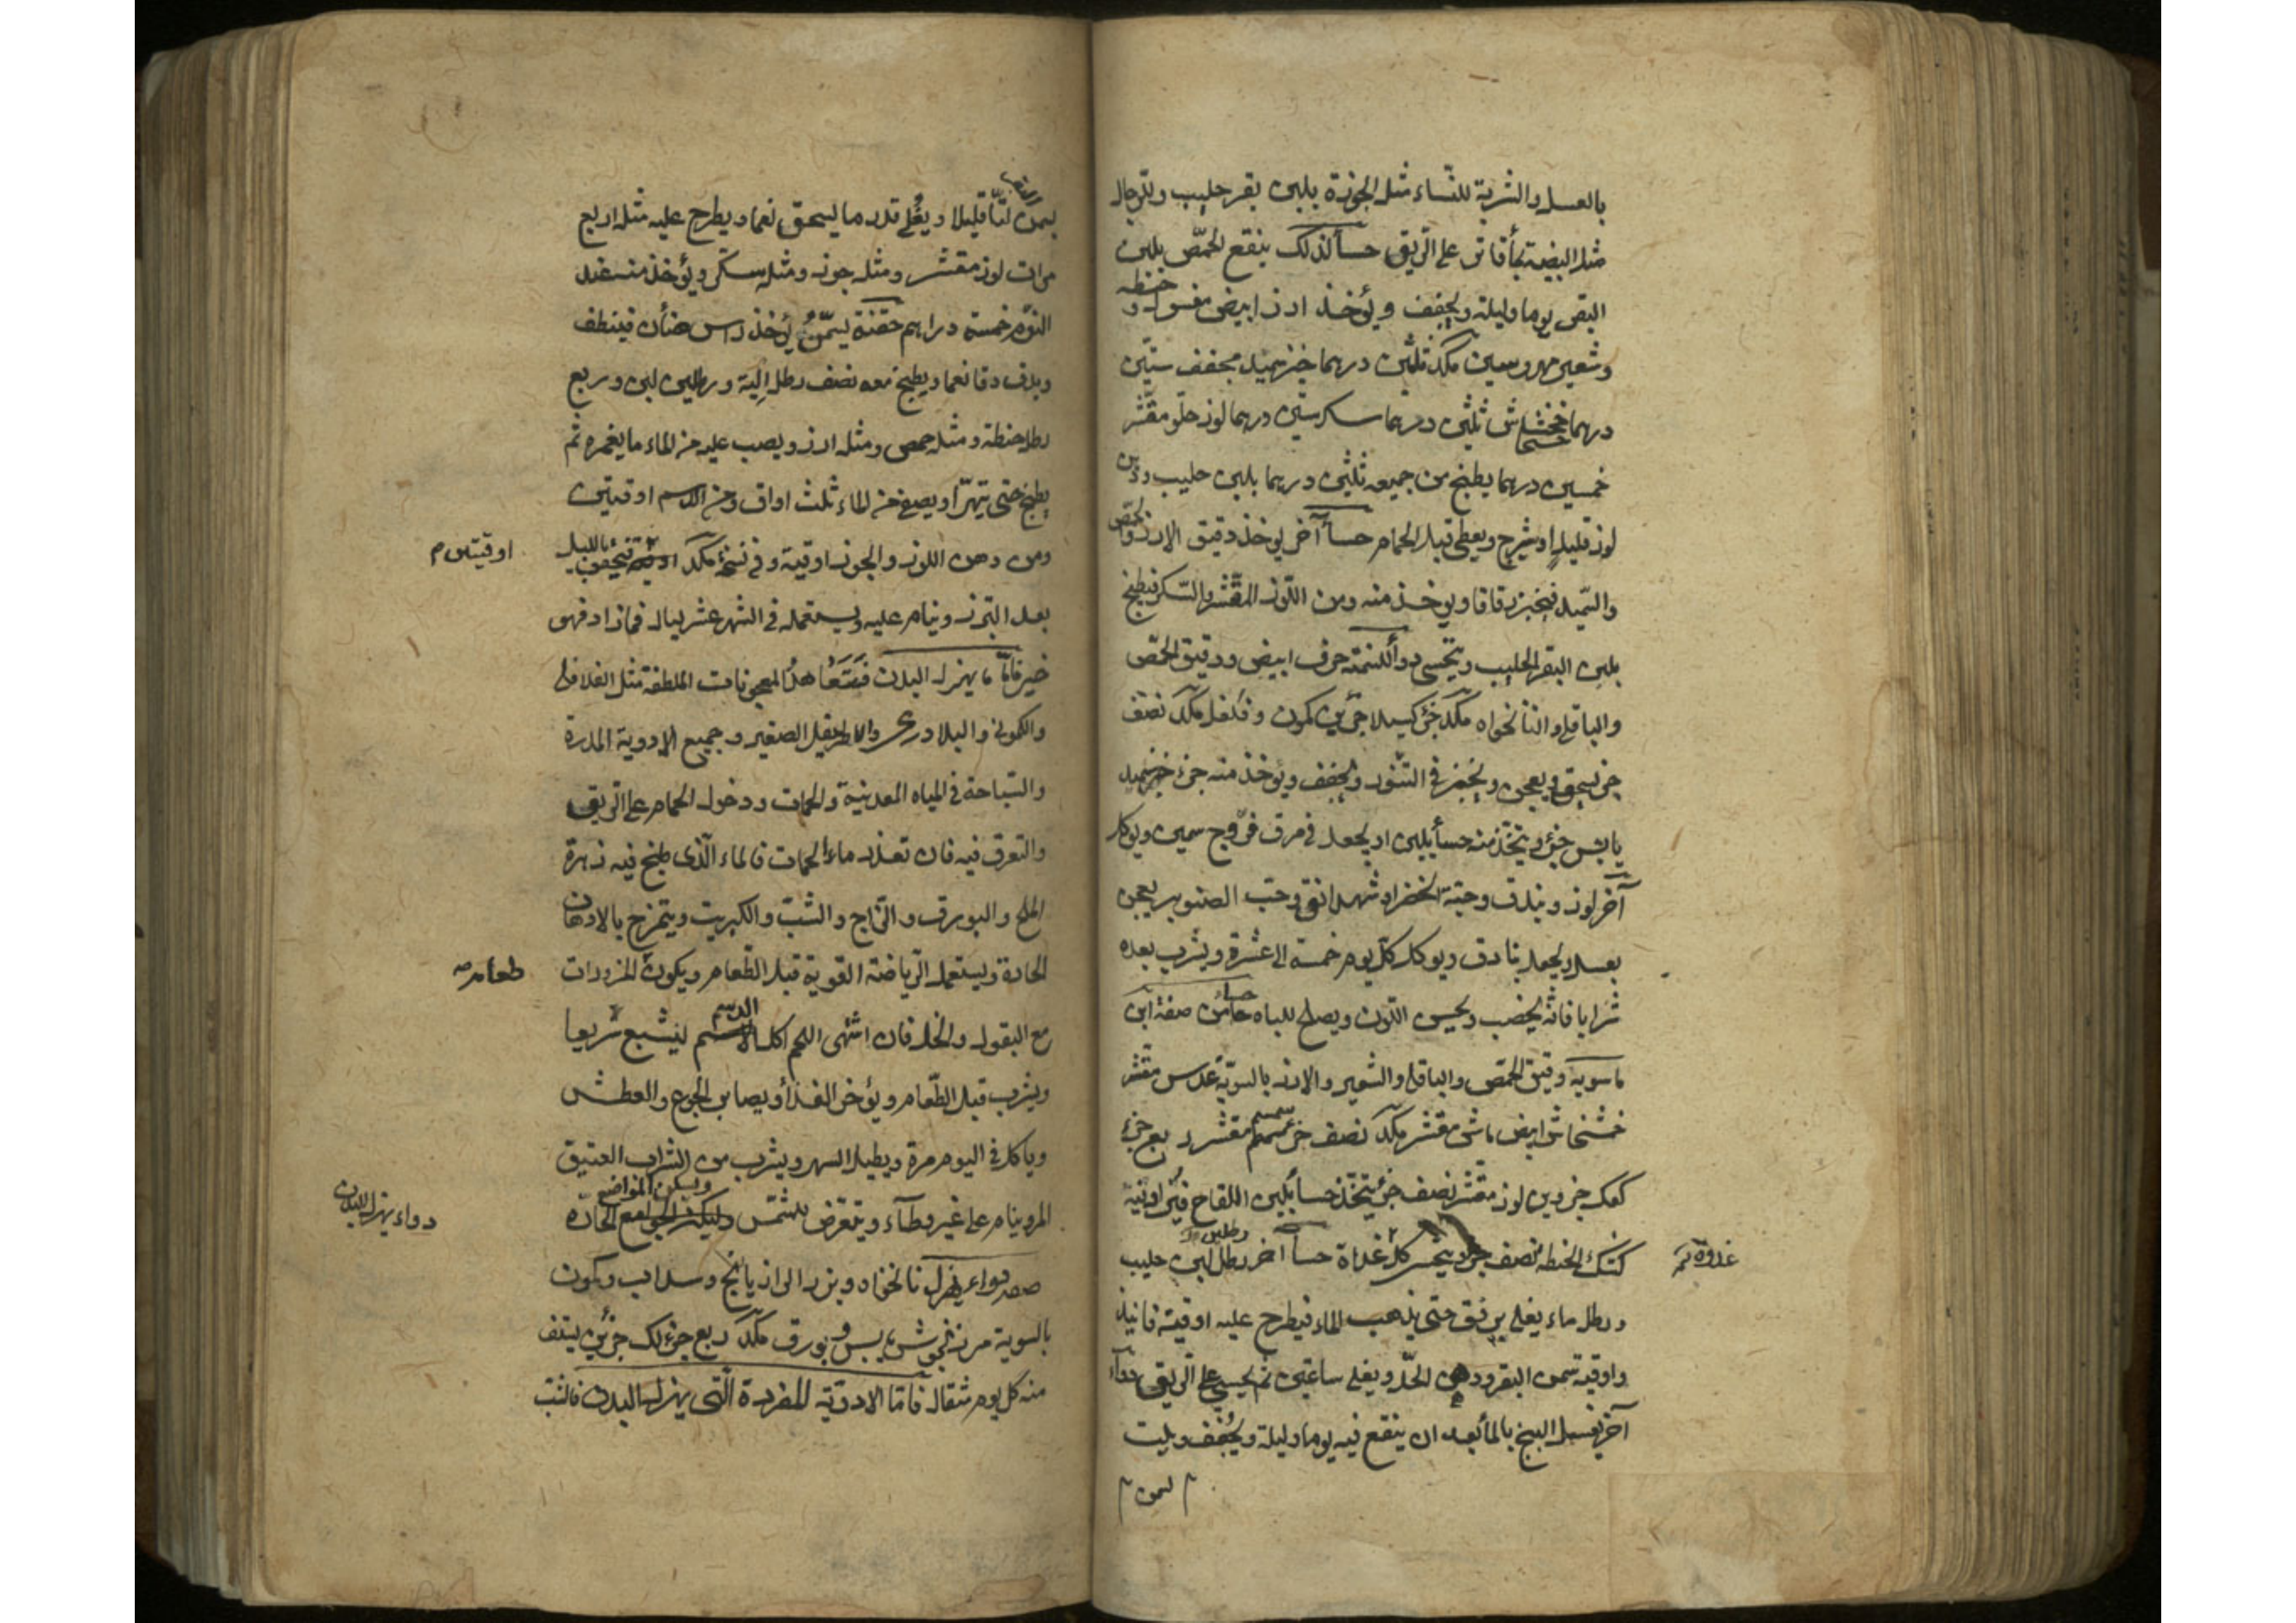 بالعسل والشربة للنساء مثل الجوزة بلبن بقر حليب وللرجال
مثل البيضة على الريق حسأ لذلك ينقع الحمّص بلبن
البقر يوما وليلة ويجفف ويؤخذ ارز ابيض مغسول و
حنطه
وشعير مهروسين مكد ثلثين درهما خبز سميد مجفف ستين
درهما خشخاش ثلثين درهما سكر ستين درهما لوز حلو مقشر
خمسين درهما يطبخ من جميعه ثلثين درهما بلبن حليب ودهن
لوز قليل او شيرج ويعطى قبل الحمام حسأ آخر يوخذ دقيق الارز والحمّص
والسّميد فيخبز رقاقا ويوخذ منه ومن اللّوز المقشر والسّكر فيطبخ
بلبن البقر الحليب ويتحسى دوأ للسمنة حرف ابيض ودقيق الحمّص
والباقلى والنانخواه مكد جزء كسيلا جزئين كمون وفلفل مكد نصف
جزء يسحق ويعجن ويخبز في التنور ويجفف ويؤخذ منه جزء خبز سميد
يابس جزء ويتخذ منه حسأ بلبن او يجعل في مرق فرّوج سمين ويوكل
آخر لوز وبندق وحبّة الخضرا وشهدانق وحبّ الصنوبر يعجن
بعسل ويجعل بنادق ويوكل كل يوم خمسة الى عشرة ويشرب بعده
شرابا فانه يخصب ويحسن اللون ويصلح للباه حسأ من صفة ابن
ماسويه دقيق الحمّص والباقلى والشعير والارز بالسويّة عدس مقشر
خشخاش ابيض ماش مقشر مكد نصف جزء سمسم مقشر ربع جزء
كعك جزوين لوز مقشر نصف جزء يتخذ حسأ بلبن اللقاح
كشك الحنطه نصف جزء يتحسى كل غداة حسأ اخر رطل لبن حليب
رطلين
غدوة
ورطل ماء يغلى برفق حتى يذهب الماء فيطرح عليه اوقية فانيذ
واوقية سمن البقر ودهن الحلّ ويغلى ساعتين ثم يحسى على الريق دوأ
آخر يغسل البنج بالمأ بعد ان ينقع فيه يوما وليلة ويجفف ويلت
بسمن
بسمن لتّا قليلا ويغلى قدر ما يسحق نعما ويطرح عليه مثل اربع
مرات لوز مقشر ومثله جوز ومثله سكر ويؤخذ منه عند
النوم خمسة دراهم حقنة يسمّن يؤخذ راس ضأن فينظف
ويدق دقا نعما ويطبخ معه نصف رطل الية ورطلين لبن وربع
رطل حنطة ومثله حمص ومثله ارز ويصب عليه من الماء ما يغمره ثم
يطبخ حتى يتهرّا ويصفى من الماء ثلث اواق ومن الدسم اوقيتين
ومن دهن اللوز والجوز اوقية وفي نسخة مكد بالليل
اوقيتين
بعد التبرز وينام عليه ويستعمله في الشهر عشر ليال فما زاد فهو
خير فامّا ما يهزل البدن المعجونات الملطفة مثل الفلافلى
والكمونى والبلادرى والاطريفل الصغير وجميع الادوية المدرة
والسّباحة في المياه المعدنية والحمات ودخول الحمام على الريق
والتعرق فيه فان تعذر ماء الحمات فالماء الذى طبخ فيه زهرة
الملح والبورق والزاج والشبّ والكبريت ويتمرخ بالادهان
الحادة ويستعمل الرياضة القوية قبل الطعام ويكون المزورات
طعامه
مع البقول والخل فان اشتهى اللحم اكل الدسم ليشبع سريعا
ويشرب قبل الطعام ويؤخر الغذأ ويصابر الجوع والعطش
وياكل في اليوم مرة ويطيل السهر ويشرب من الشراب العتيق
المر وينام على غير وطآء ويتعرض للشمس ويسكن المواضع الحارّه
دواء يهزل البدن
صفة دواء يهزل نانخواه وبزر الرازيانج وسداب وكمون
بالسوية مرزنجوش يابس وبورق مكد ربع جزء لك جزئين يستف
منه كل يوم مثقال فامّا الادوية المفردة التى يهزل البدن فالشب